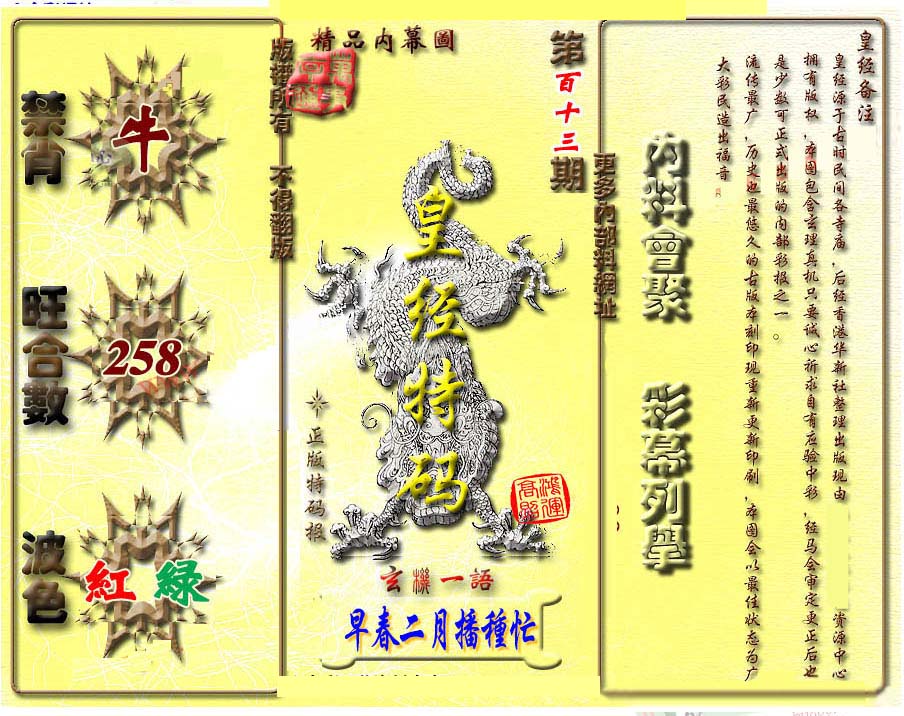 皇经备注
皇经源于古时民间各寺庙，后经香港华新社整理出版现由 资源中心
拥有版权，本图包含玄理真机只要诚心祈求自有应验中彩，经马会审定更正后也
是少数可正式出版的内部彩报之一。
流传最广，历史也最悠久的古版本刻印现重新更新印刷，本图会以最佳状态为广
大彩民造出福音
內料會聚
彩幕列舉
更多內部料網址
第百十三期
精品内幕圖
皇经特码
正版特码报
鴻運
高照
玄機一語
早春二月播種忙
版權所有 不得翻版
禁肖
牛
旺合數
258
波色
紅 綠